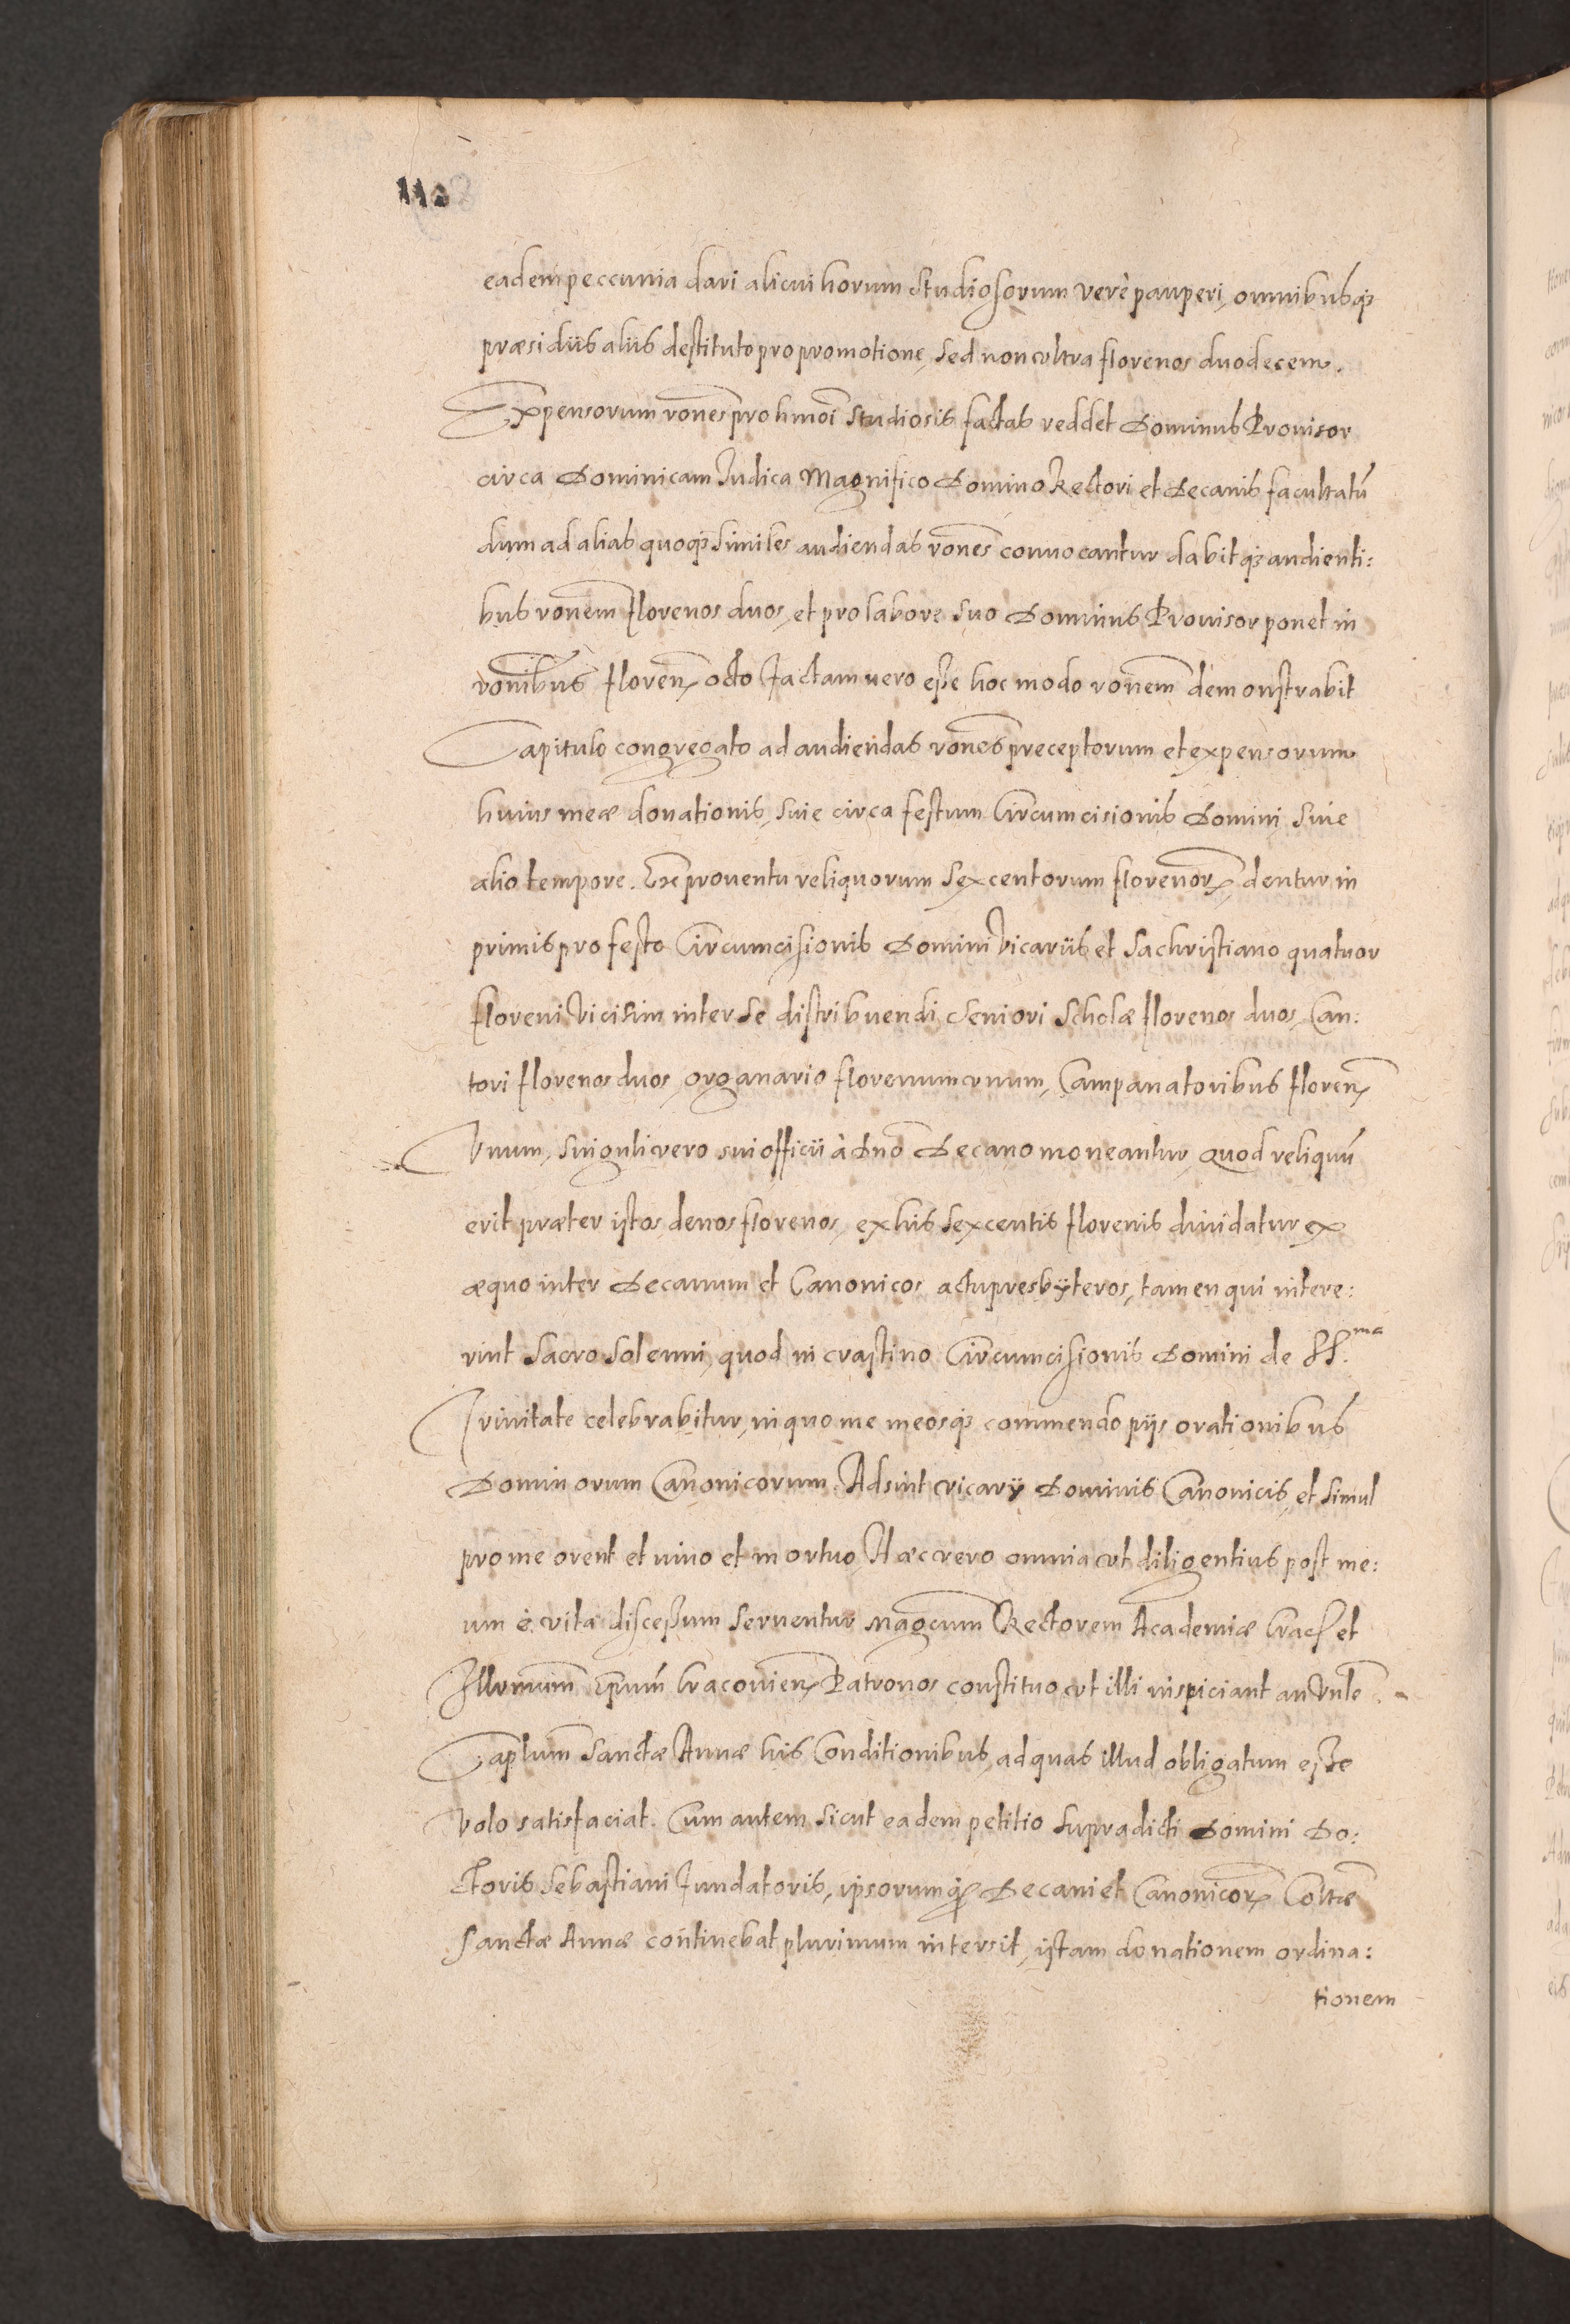 eadem peccunia dari alicui horum Studiosorum verè pauperi, omnibusq;
præsidiis aliis destituto pro promotione, sed non vltra florenos duodecem.
Expensorum rones pro hmoi Studiosis factas reddet Dominus Prouisor
circa Dominicam Iudica Magnifico Domino Rectori et Decanis facultatũ
dum ad alias quoq; similes audiendas rones conuocantur dabitq; audienti:
bus ronem florenos duos, et pro labore suo Dominus Prouisor ponet in
ronibus floren octo factam uero esse hoc modo ronem demonstrabit
Capitulo congregato ad audiendas rones preceptorum et expensorum
huius meæ donationis, siue circa festum Circumcisionis Domini siue
alio tempore. Ex prouentu reliquorum sexcentorum florenor dentur in
primis pro festo Circumcisionis Domini Vicariis et Sachristiano quatuor
floreni Vicissim inter se distribuendi Seniori Scholæ florenos duos, Can:
tori florenos duos, organario florenum vnum, Campanatoribus floren
Vnum, singuli vero sui officii à Dno Decano moneantur, Quod reliquũ
erit præter istos denos florenos, ex his sexcentis florenis diuidatur ex
æquo inter Decanum et Canonicos actu presbyteros, tamen qui intere:
rint Sacro Solenni, quod in crastino Circumcisionis Domini de SS.ma
Trinitate celebrabitur, in quo me meosq; commendo piis orationibus
Dominorum Canonicorum. Adsint vicarij Dominis Canonicis, et simul
pro me orent et uiuo et mortuo, Hæc vero omnia vt diligentius post me:
um è vita discessum seruentur Magcum Rectorem Academiæ Crac et
Illrmum Epum Cracouien Patronos constituo vt illi inspiciant an Vnle
Caplum Sanctæ Annæ his Conditionibus, ad quas illud obligatum esse
volo satisfaciat. Cum autem sicut eadem petitio supradicti Domini Do:
ctoris Sebastiani fundatoris, ipsorumq; Decani et Canonicor Coltæ
Sanctæ Annæ continebat plurimum intersit, istam donationem ordina:
tionem